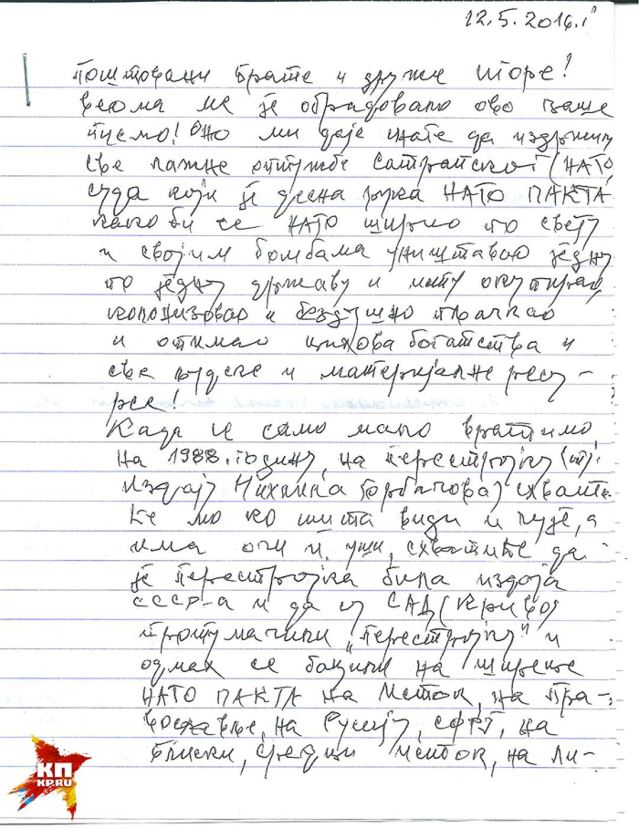 12.5.2016.г
Поштовани брате и друже Игоре!
Веома ме је обрадовало ово ваше
писмо! Оно ми даје снаге да издржим
све лажне оптужбе сатрапског (НАТО)
суда који је десна рука НАТО ПАКТА
како би се НАТО ширио по свету
и својим бомбама уништавао једну
по једну државу и исту окупирао,
колонизовао и бездушно пљачкао
и отимао њихова богатства и
све људске и материјалне ресу-
рсе!
Када се само мало вратимо
на 1988. годину, на перестројку (тј.
издају Михаила Горбачова) схвати-
ће мо ко шта види и чује, а
има очи и уши, схватиће да
је перестројка била издаја
СССР-а и да су САД (криво)
протумачили "перестројку" и
одмах се бацили на ширење
НАТО ПАКТА на Исток, на Пра-
вославље, на Русију, СФРЈ, на
Блиски, средњи исток, на Ли-
КП
KP.RU